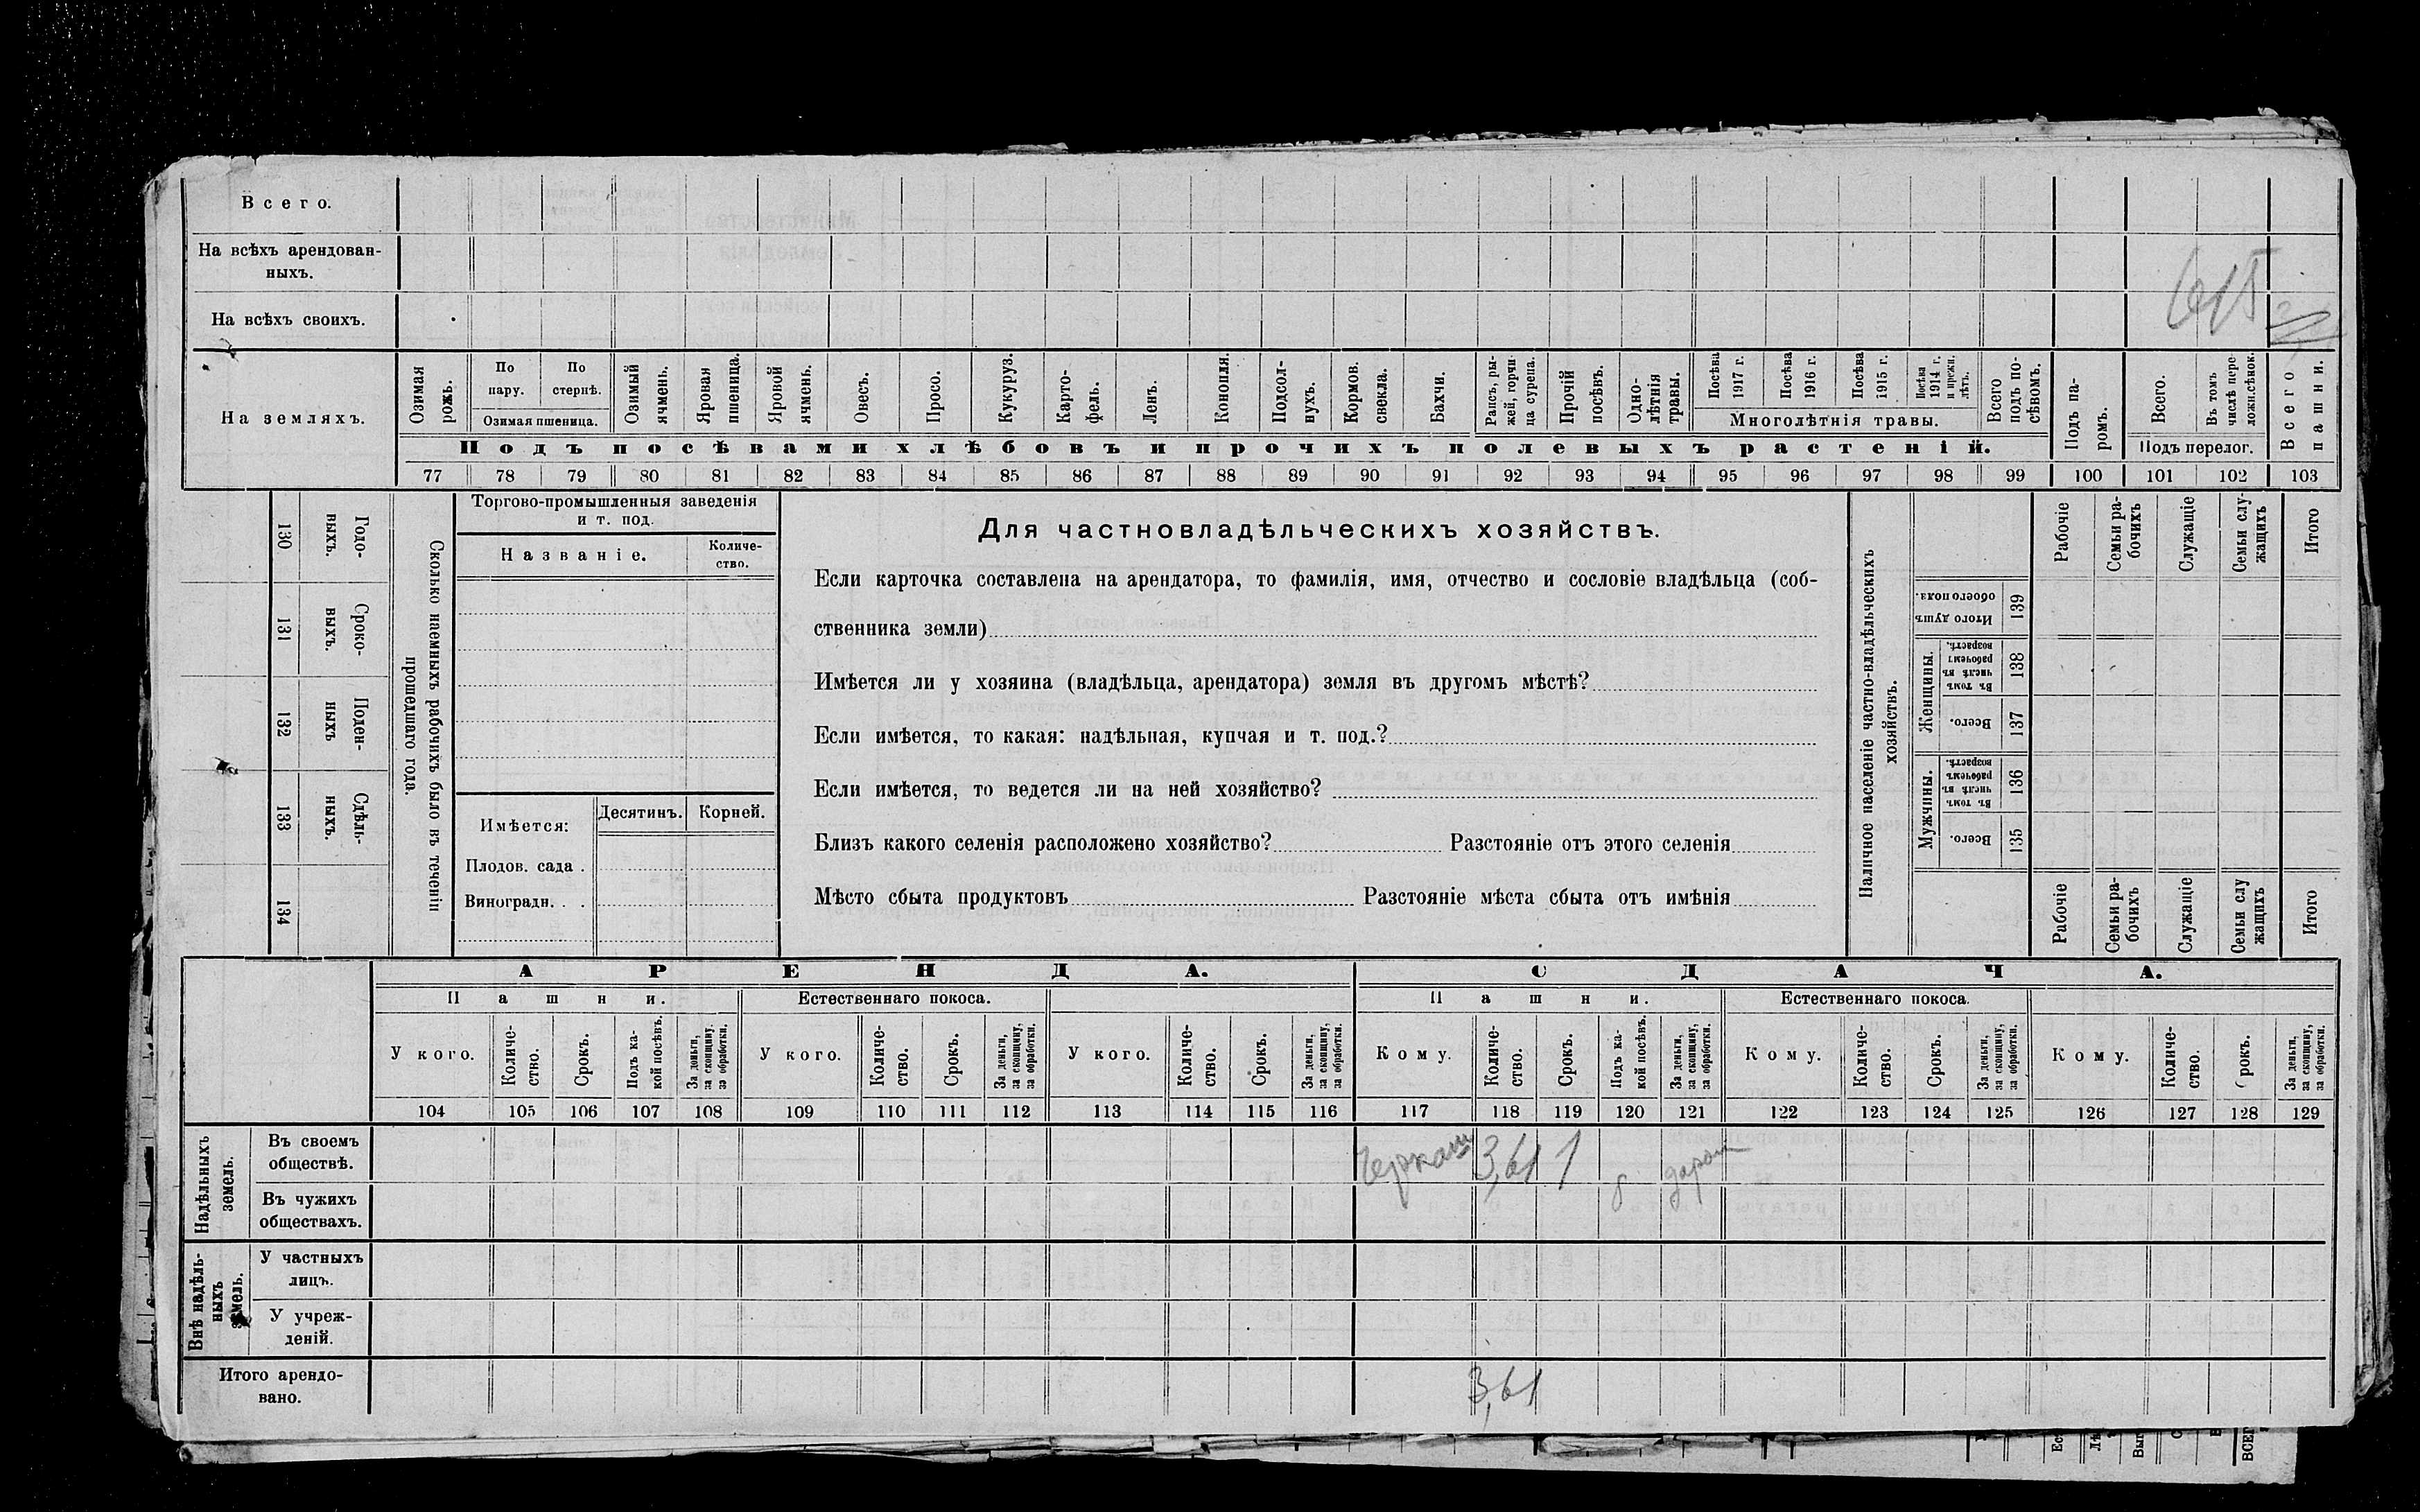 Всего.
На всѣхъ арендован-
ныхъ.
На всѣхъ своихъ.
615
На земляхъ.
Озимая рожь.
По пару.
По стернѣ.
Озимая пшеница.
Озимый ячмень.
Яровая пшеница.
Яровой ячмень.
Овесъ.
Просо.
Кукуруз.
Карто-
фель.
Ленъ.
Конопля.
Подсол-
нухъ.
Кормов. свекла.
Бахчи.
Рапсъ, ры-
жей, горчи
ца сурепа.
Прочій посѣвъ.
Одно-
лѣтнія травы.
Посѣва 1917 г.
Посѣва 1916 г.
Посѣва 1915 г.
Посѣва 1914 г. и прежн. лѣтъ.
Многолѣтнія травы.
Всего подъ по-
сѣвомъ.
Подъ па-
ромъ.
Всего.
Въ томъ числѣ пере-
ложн.сѣнокос.
Подъ перелог.
Всего пашни.
Подъ посѣвами хлѣбовъ и прочихъ полевыхъ растеній.
77 78 79 80 81 82 83 84 85 86 87 88 89 90 91 92 93 94 95 96 97 98 99 100 101 102 103
130 Годо-
выхъ.
131 Сроко-
выхъ.
132 Поден-
ныхъ
133 Сдѣль-
ныхъ.
134
Сколько наемныхъ рабочихъ было въ теченіи
прошедшаго года.
Торгово-промышленныя заведенія
и т. под.
Названіе.
Количе-
ство.
Имѣется:
Десятинъ.
Корней.
Плодов. сада .
Виноградн. . .
Для частновладѣльческихъ хозяйствъ.
Если карточка составлена на арендатора, то фамилія, имя, отчество и сословіе владѣльца (соб-
ственника земли)
Имѣется ли у хозяина (владѣльца, арендатора) земля въ другомъ мѣстѣ?
Если имѣется, то какая: надѣльная, купчая и т. под.?
Если имѣется, то ведется ли на ней хозяйство?
Близъ какого селенія расположено хозяйство? Разстояніе отъ этого селенія
Мѣсто сбыта продуктовъ Разстояніе мѣста сбыта отъ имѣнія
Наличное населеніе частно-владѣльческихъ
хозяйствъ.
Рабочіе
Семьи ра-
бочихъ
Служащіе
Семьи слу-
жащихъ
Итого
Итого душъ обоего пола. 139
Женщины.
Въ томъ числѣ въ рабочемъ возрастѣ. 138
Всего. 137
Мужчины.
Въ томъ числѣ въ рабочемъ возрастѣ. 136
Всего. 135
Рабочіе
Семьи ра-
бочихъ
Служащіе
Семьи слу
жащихъ
Итого
АРЕНДА.
СДАЧА.
Пашни.
Естественнаго покоса.
Пашни.
Естественнаго покоса.
У кого.
Количе-
ство.
Срокъ.
Подъ ка-
кой посѣвъ.
За деньги, за скопщину, за обработки.
У кого.
Количе-
ство.
Срокъ.
За деньги, за скопщину, за обработки.
У кого.
Количе-
ство.
Срокъ.
За деньги, за скопщину, за обработки.
Кому.
Количе-
ство.
Срокъ.
Подъ ка-
кой посѣвъ.
За деньги, за скопщину, за обработки.
Кому.
Количе-
ство.
Срокъ.
За деньги, за скопщину, за обработки.
Кому.
Количе-
ство.
рокъ.
За деньги, за скопщину, за обработки.
104 105 106 107 108 109 110 111 112 113 114 115 116 117 118 119 120 121 122 123 124 125 126 127 128 129
Надѣльныхъ
земель.
Въ своемъ
обществѣ.
3,61 1
даром
Въ чужихъ
обществахъ.
Внѣ надѣль-
ныхъ
земель.
У частныхъ
лицъ.
У учреж-
деній.
Итого арендо-
вано.
3,61